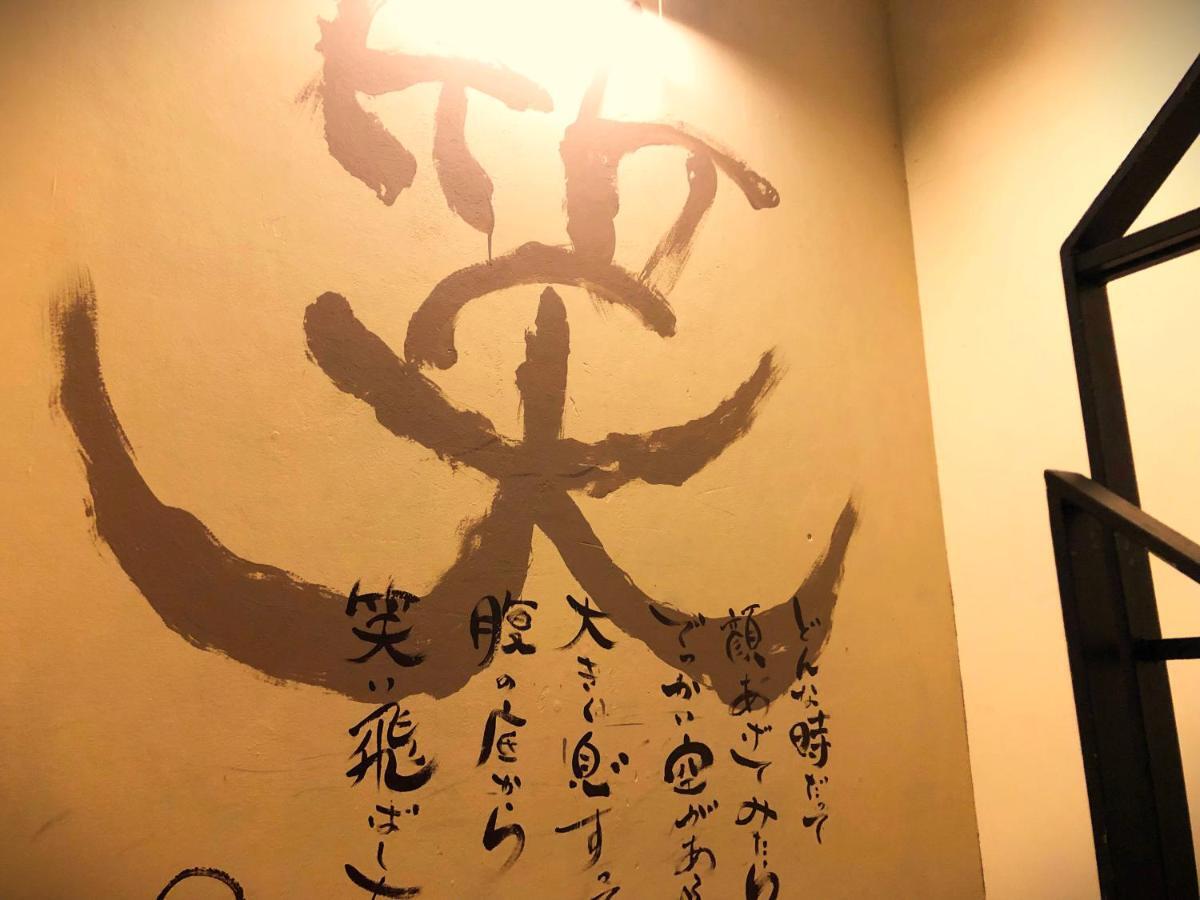 笑
どんな時だって
顔あげてみたら
でっかい空がある
大きく息すって
腹の底から
笑い飛ばした